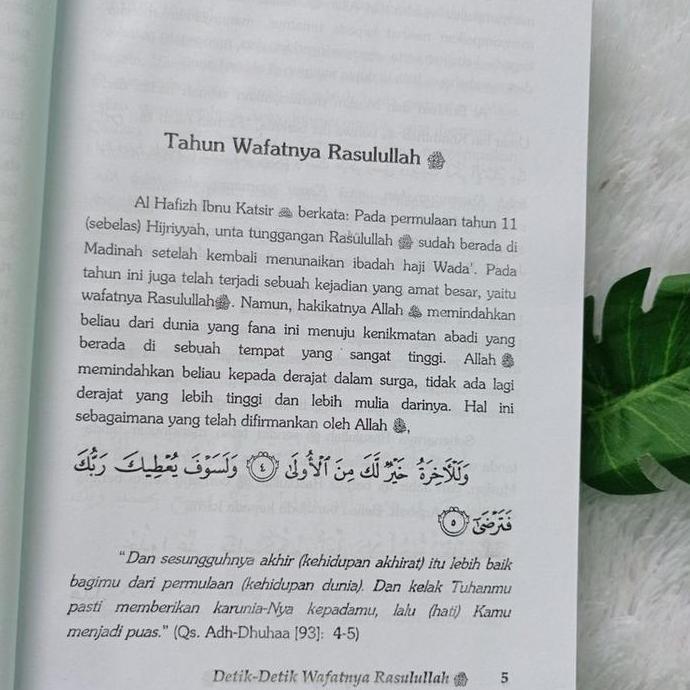 Tahun Wafatnya Rasulullah ﷺ
Al Hafizh Ibnu Katsir berkata: Pada permulaan tahun 11
(sebelas) Hijriyyah, unta tunggangan Rasulullah ﷺ sudah berada di
Madinah setelah kembali menunaikan ibadah haji Wada'. Pada
tahun ini juga telah terjadi sebuah kejadian yang amat besar, yaitu
wafatnya Rasulullah ﷺ. Namun, hakikatnya Allah memindahkan
beliau dari dunia yang fana ini menuju kenikmatan abadi yang
berada di sebuah tempat yang sangat tinggi. Allah
memindahkan beliau kepada derajat dalam surga, tidak ada lagi
derajat yang lebih tinggi dan lebih mulia darinya. Hal ini
sebagaimana yang telah difirmankan oleh Allah ,
وَلَلْآخِرَةُ خَيْرٌ لَّكَ مِنَ ٱلْأُولَىٰ ٤ وَلَسَوْفَ يُعْطِيكَ رَبُّكَ
فَتَرْضَىٰٓ ٥
"Dan sesungguhnya akhir (kehidupan akhirat) itu lebih baik
bagimu dari permulaan (kehidupan dunia). Dan kelak Tuhanmu
pasti memberikan karunia-Nya kepadamu, lalu (hati) Kamu
menjadi puas." (Qs. Adh-Dhuhaa [93]: 4-5)
Detik-Detik Wafatnya Rasulullah ﷺ 5